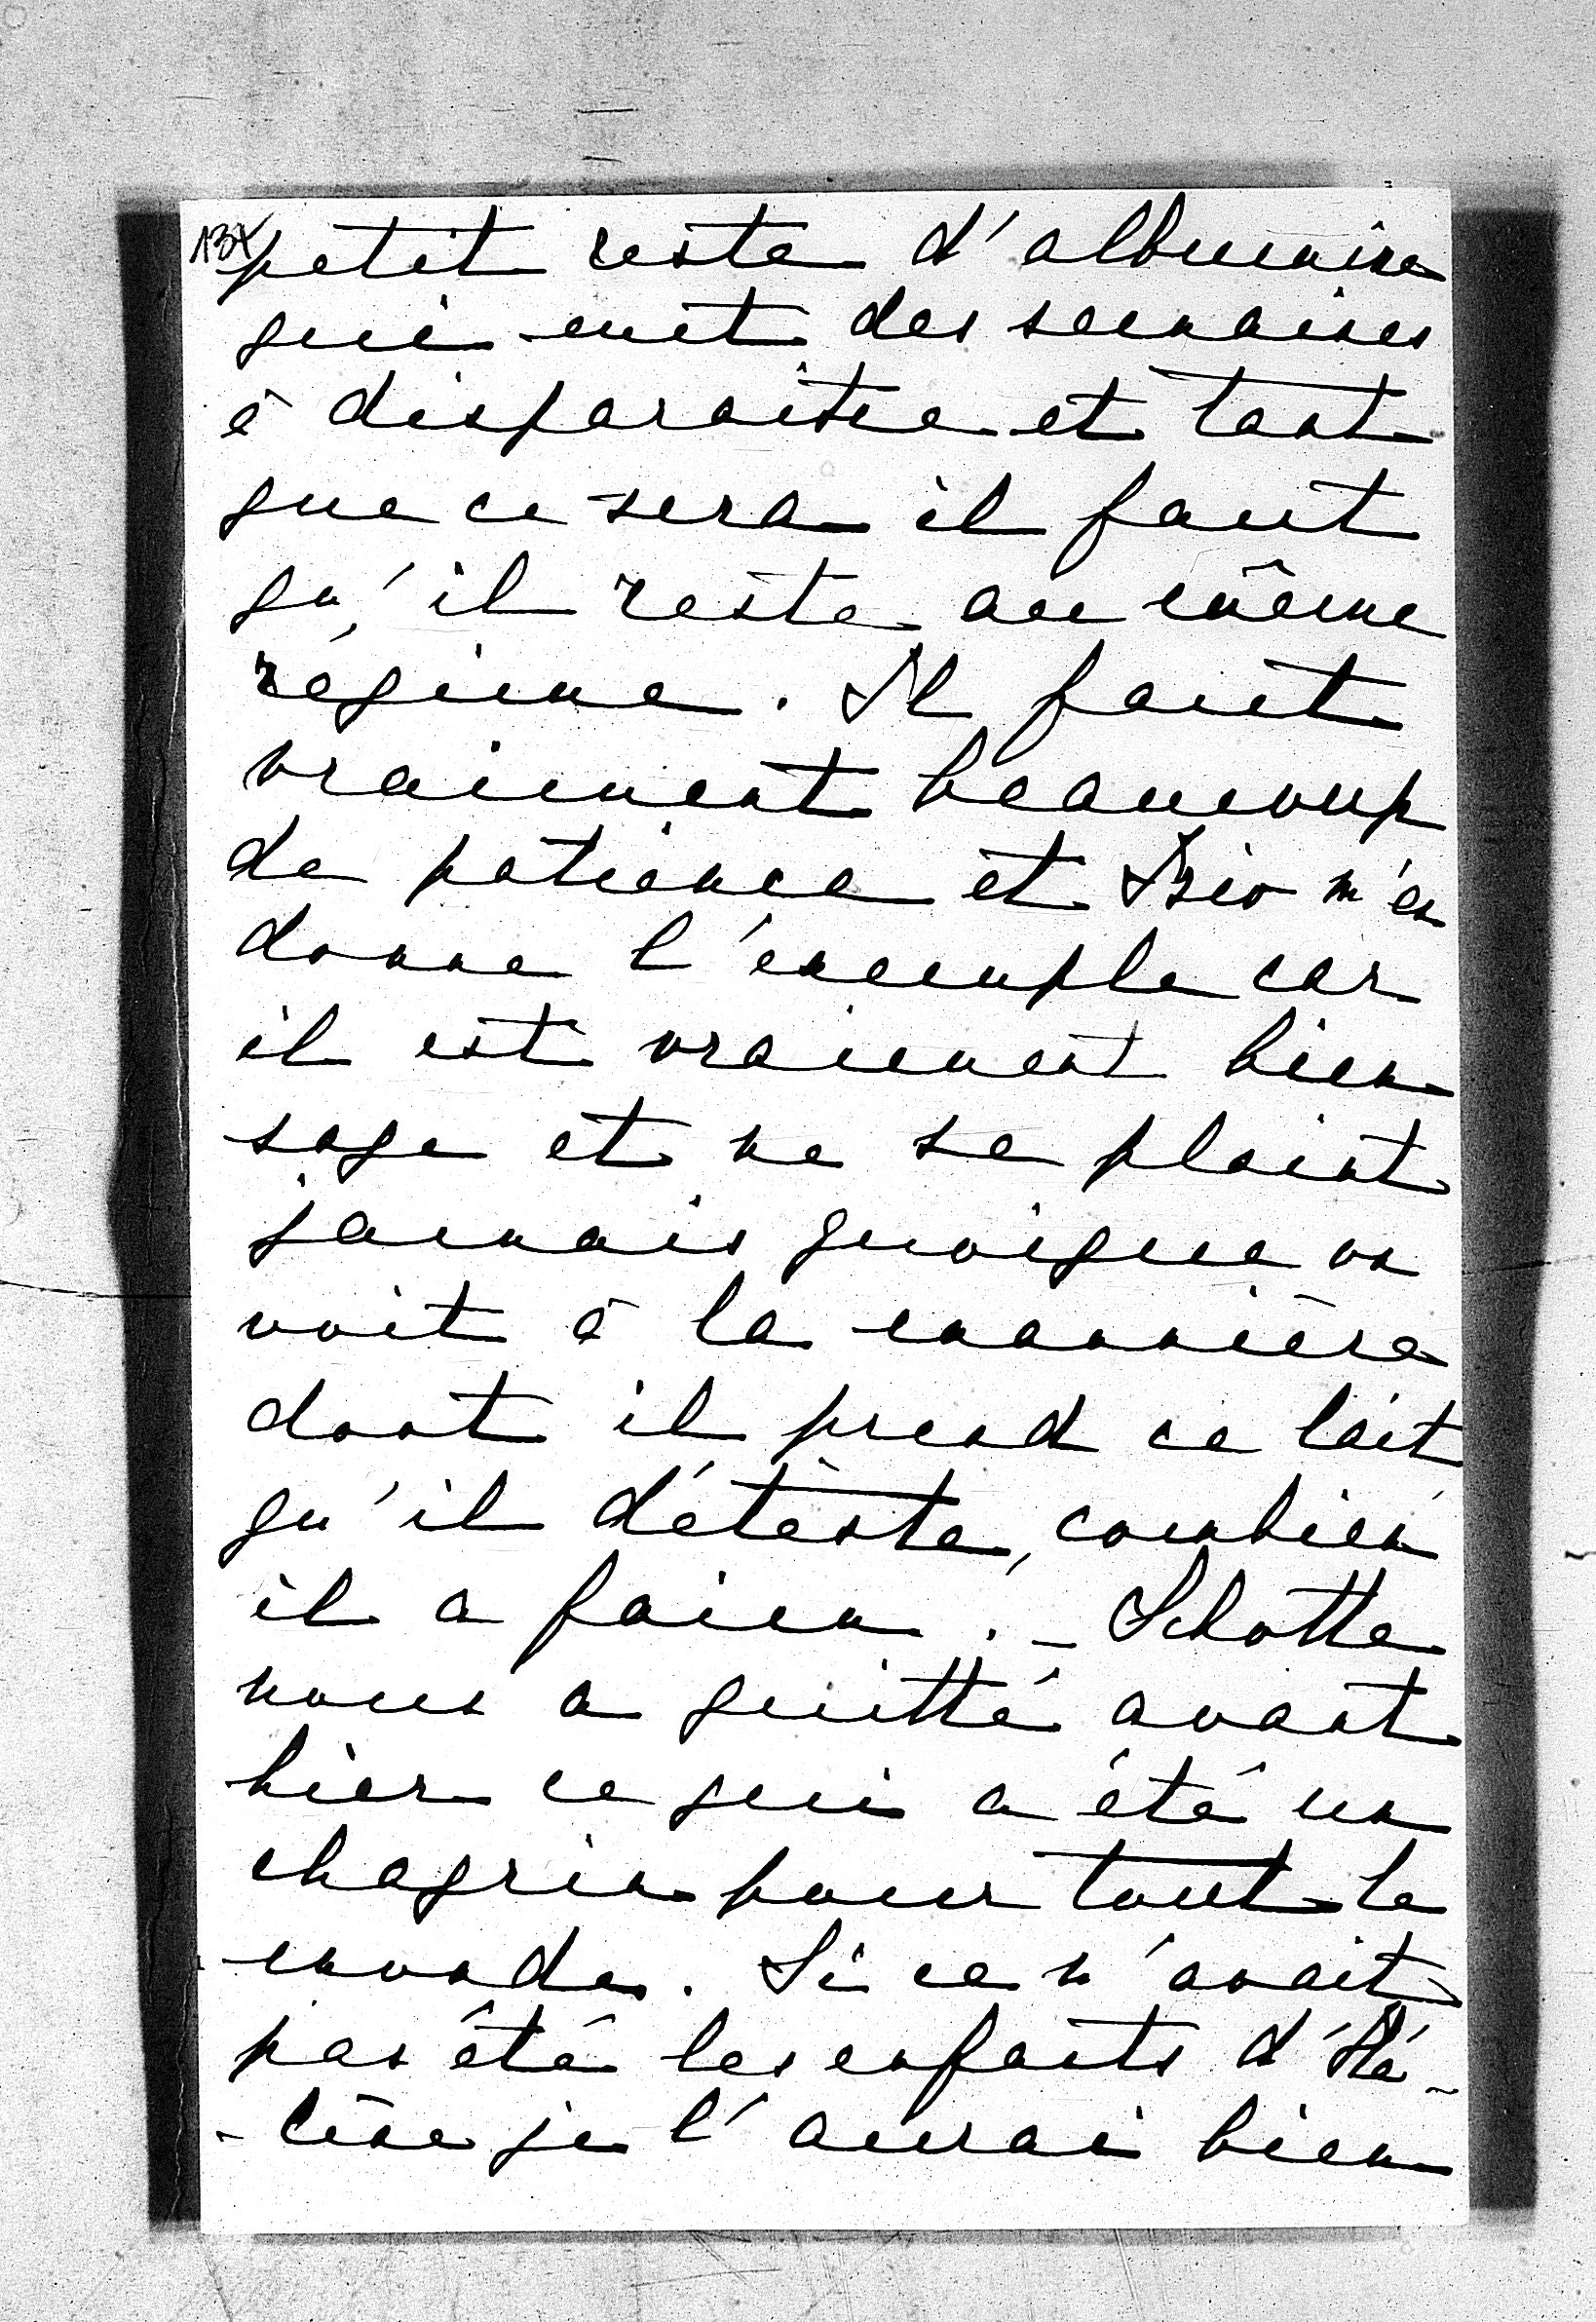 petit reste d'albumine
qui met des semaines
à disparaître et tant
que ce sera il faut
qu'il reste au même
régime. Il faut
vraiment beaucoup
de patience et m'en
donne l'exemple car
il est vraiment bien
sage et ne se plaint
jamais quoique on
voit à la manière
dont il prend ce lait
qu'il déteste, combien
il a faim. - Schotte
nous a quitté avant
hier ce qui a été un
chagrin pour tout le
monde. Si ce n'avait
pas été les enfants d'Hé-
-lène je l'aurai bien